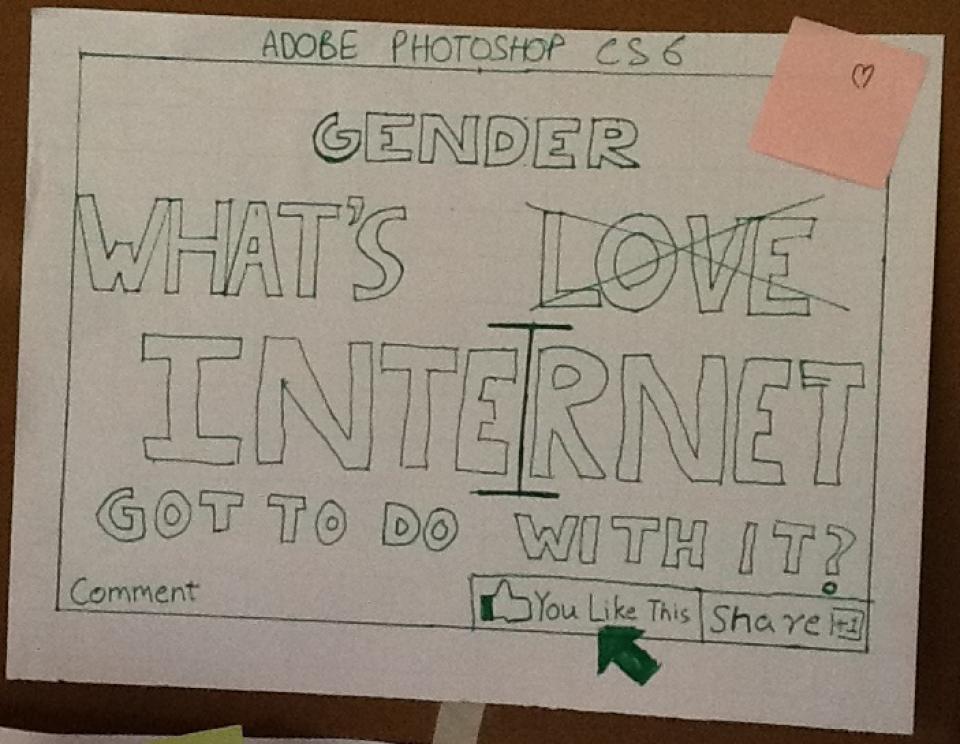 ADOBE PHOTOSHOP CS6
GENDER
WHAT'S LOVE
INTERNET
GOT TO DO WITH IT?
Comment You Like This Share +1